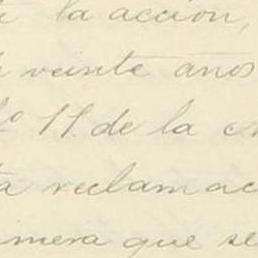 la acción,
veinte años
11. de la
reclamac
imera que se